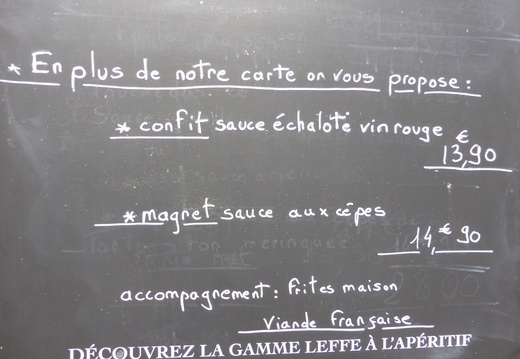 * En plus de notre carte on vous propose :
* confit sauce échalote vin rouge
13,€90
* magret sauce aux cêpes
14,€90
accompagnement : frites maison
Viande française
DÉCOUVREZ LA GAMME LEFFE À L'APÉRITIF